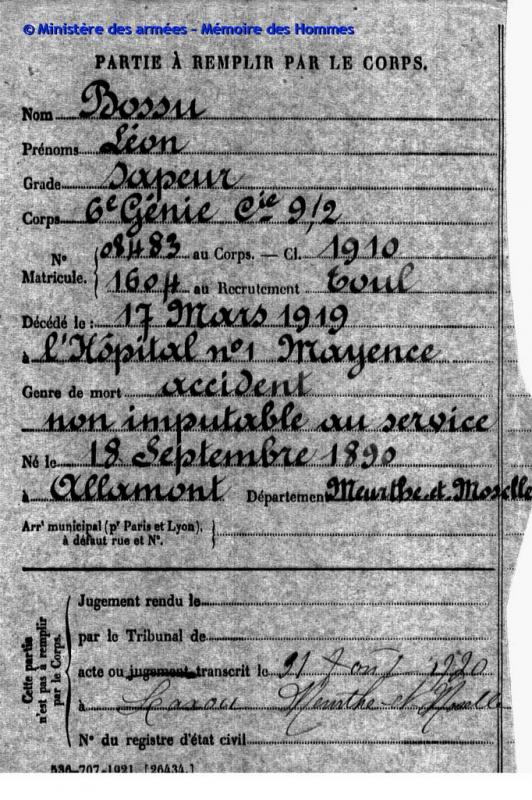 © Ministère des armées - Mémoire des Hommes
PARTIE À REMPLIR PAR LE CORPS.
Nom Bossu
Prénoms Léon
Grade Sapeur
Corps 6e Génie Cie 9/2
N° Matricule. { 08483 au Corps. — Cl. 1910
1604 au Recrutement Toul
Décédé le : 17 Mars 1919
à l'Hôpital n°1 Mayence
Genre de mort accident
non imputable au service
Né le 18 Septembre 1890
à Allamont Département Meurthe-et-Moselle
Arrt municipal (pr Paris et Lyon), }
à défaut rue et N°.
Cette partie n'est pas à remplir par le Corps.
Jugement rendu le
par le Tribunal de
acte ou jugement transcrit le 21 1920
à Meurthe-et-Moselle
N° du registre d'état civil
536-707-1921. [26434.]